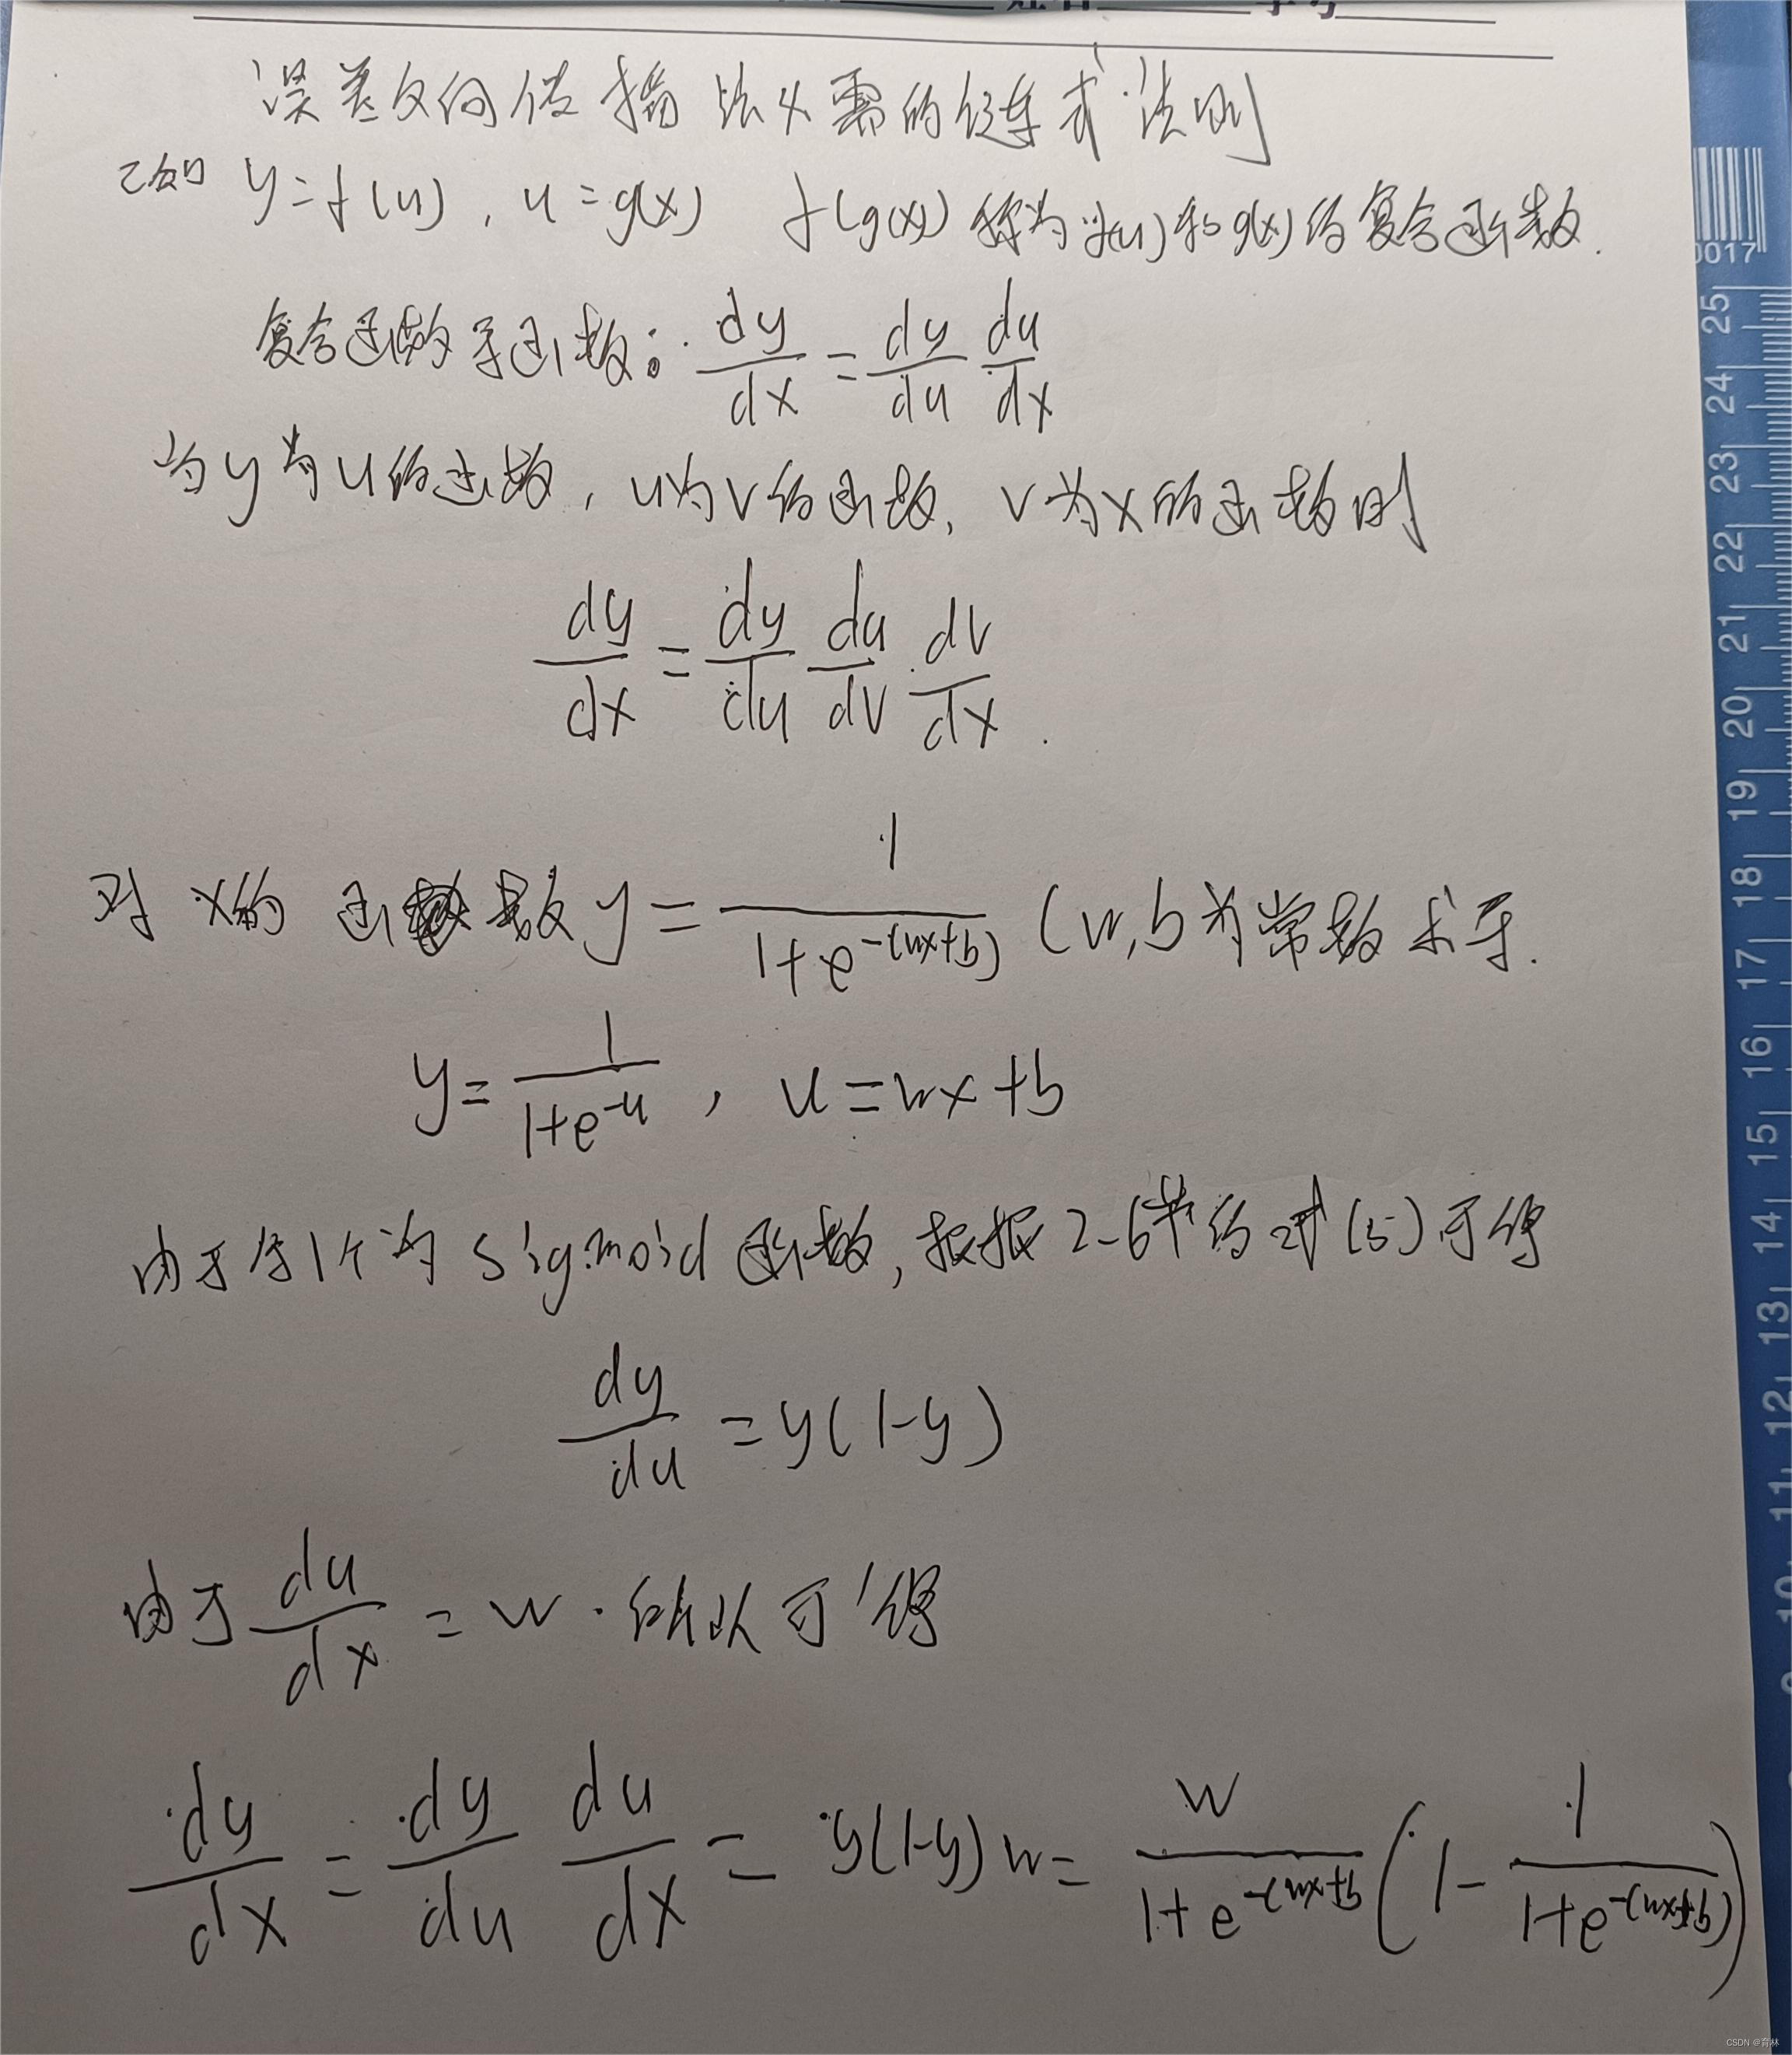 误差反向传播法必需的链式法则
已知 y=f(u), u=g(x) f(g(x)) 称为 f(u) 和 g(x) 的复合函数.
复合函数导函数: dy/dx = dy/du du/dx
当 y 为 u 的函数, u 为 v 的函数, v 为 x 的函数时
dy/dx = dy/du du/dv dv/dx .
对 x 的函数 y = 1/(1+e^-(wx+b)) (w,b 为常数 求导.
y = 1/(1+e^-u) , u = wx+b
由于第1个为 sigmoid 函数, 根据 2-6 节的式 (5) 可得
dy/du = y(1-y)
由于 du/dx = w . 所以可得
dy/dx = dy/du du/dx = y(1-y)w = w/(1+e^-(wx+b) (1 - 1/(1+e^-(wx+b)))
0017
25 24 23 22 21 20 19 18 17 16 15 14 13 12 11 10
CSDN @育林